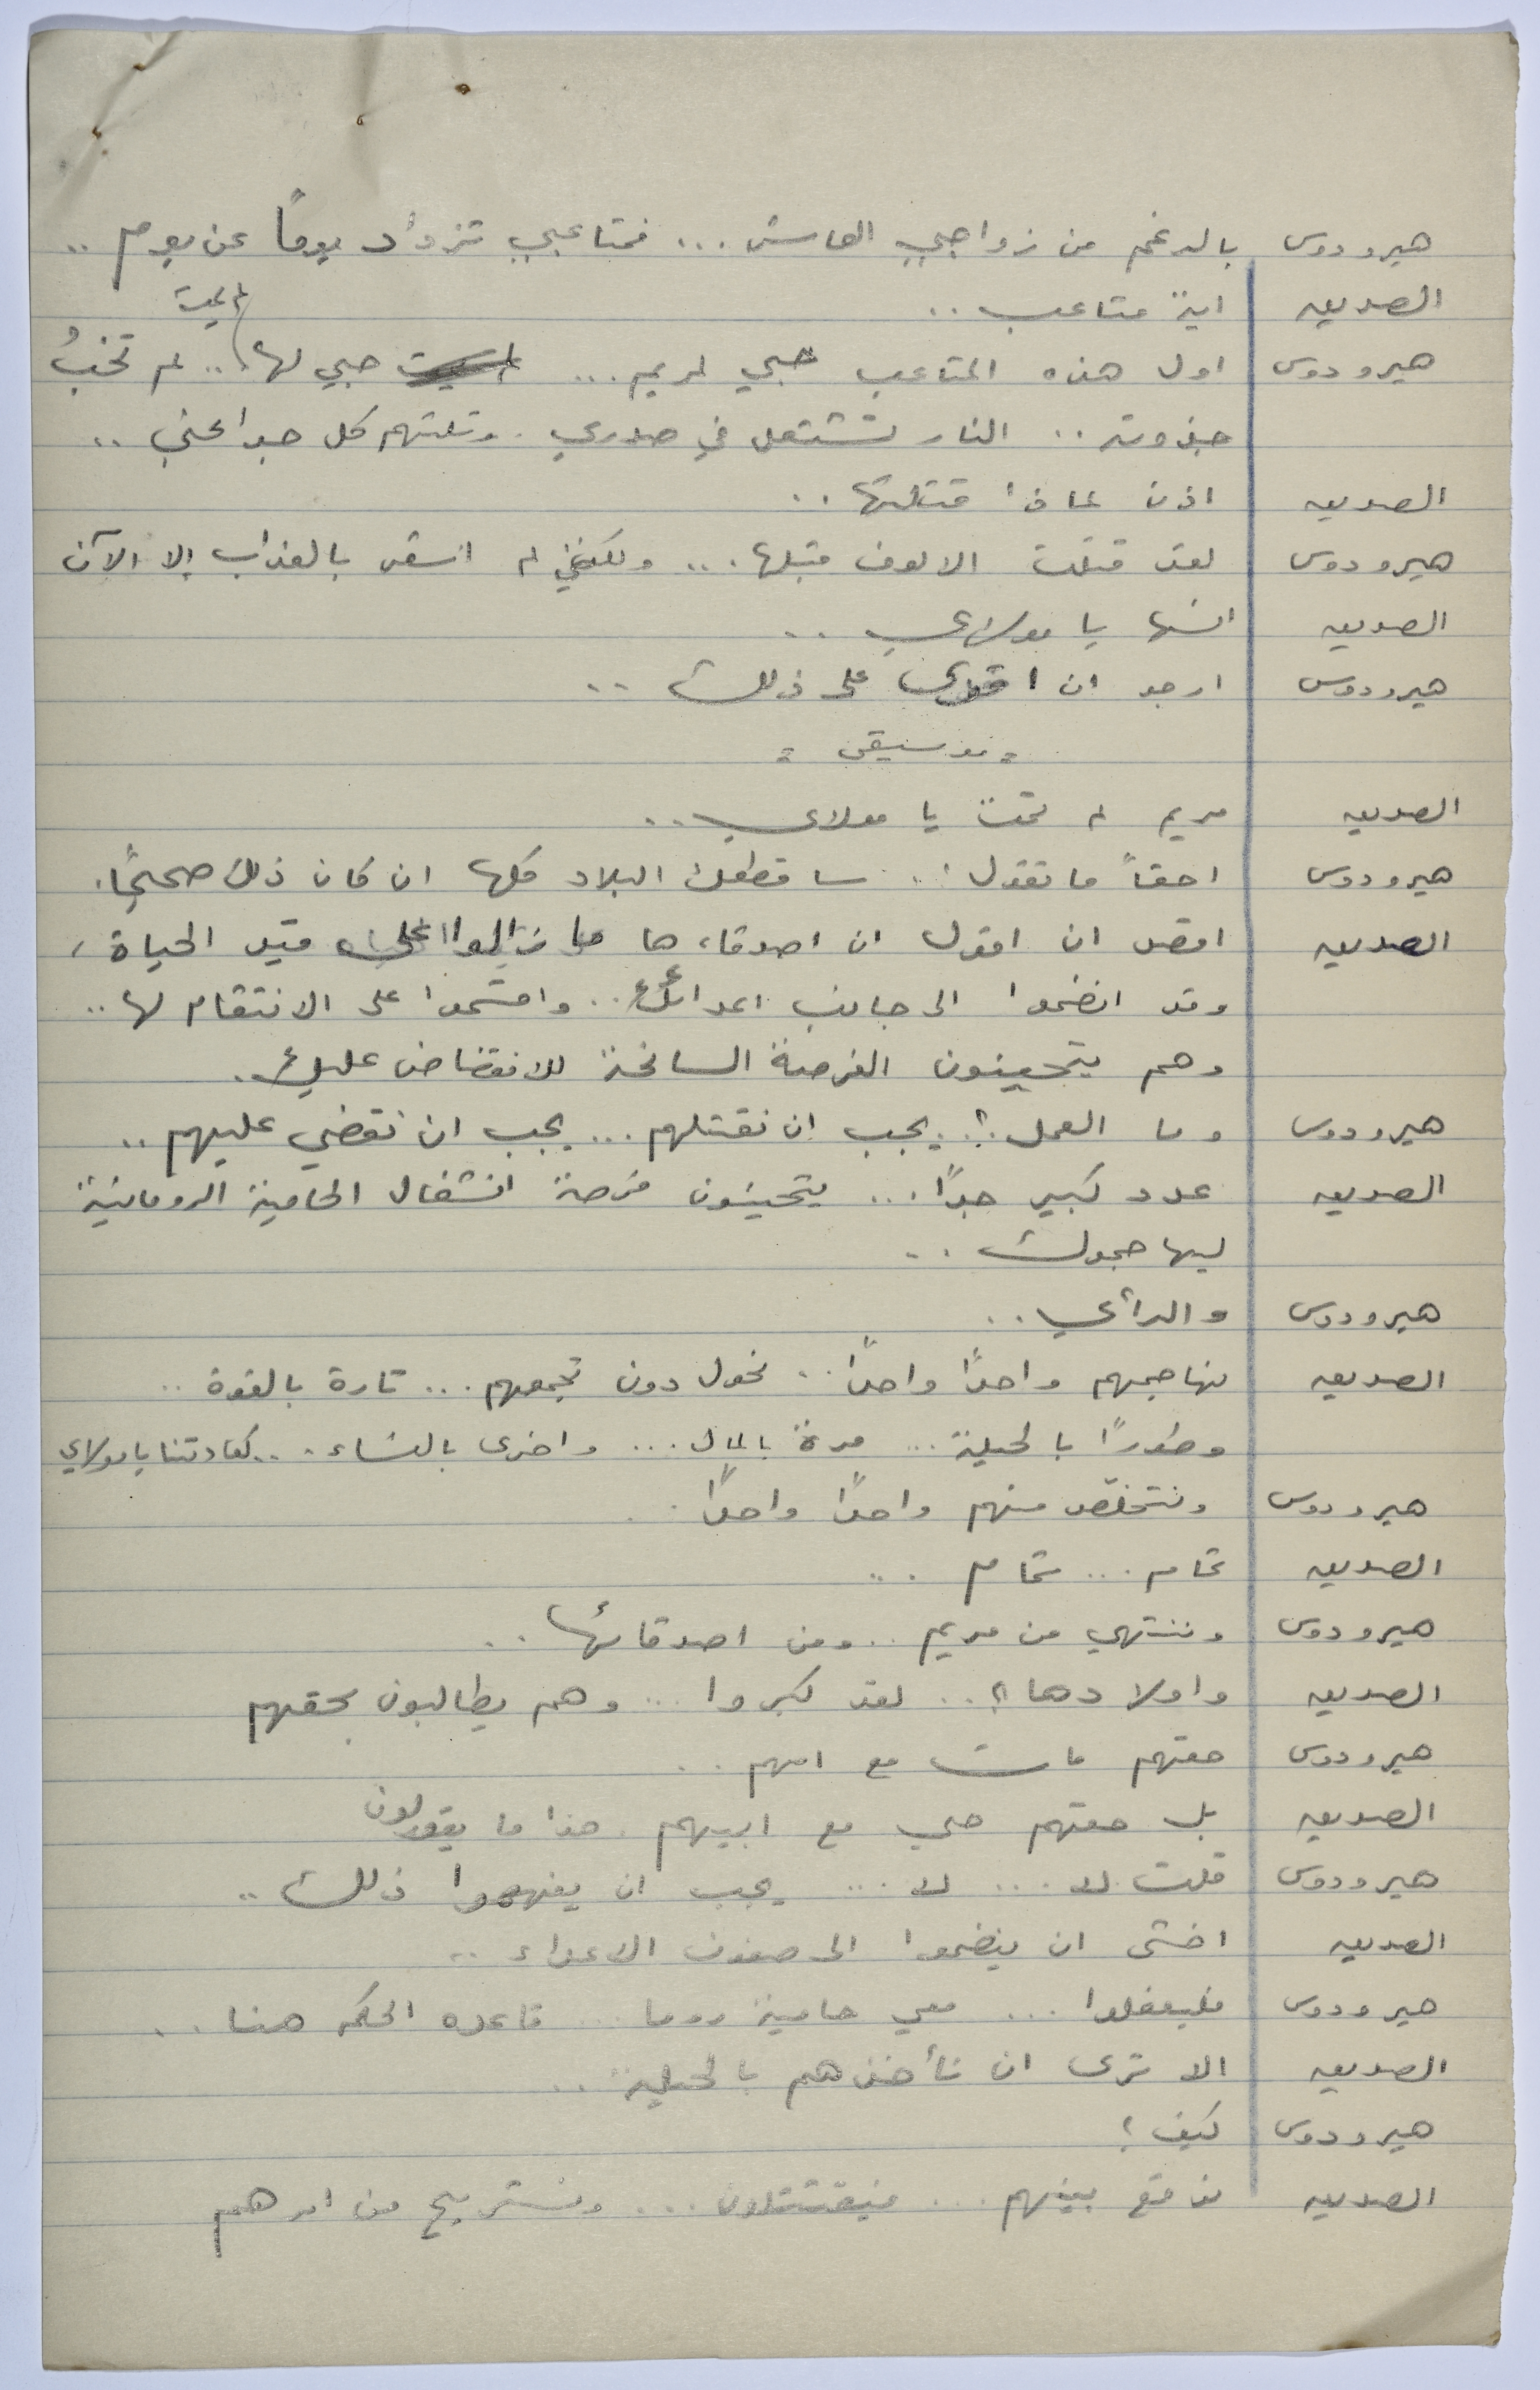 هيرودوس بالرغم من زواجي العاشر... فمتاعبي تزداد يوماً عن يوم ..
الصديق اية متاعب ..
هيرودوس اول هذه المتاعب حبي لمريم ... حبي لها لم يمت .. لم تخبُ
جذوته .. النار تشتعل في صدري . وتلتهم كل جوانحي ..
الصديق اذن لماذا قتلتها ..
هيرودوس لقد قتلت الالوف قبلها ... ولكنني لم اشعر بالعذاب إلا الآن
الصديق انسها يا مولاي ..
هيرودوس ارجو ان اقوى على ذلك ..
= موسيقى =
الصديق مريم لم تمت يا مولاي ..
هيرودوس احقاً ما تقول .. ساقطعك البلاد كلها ان كان ذلك صحيحًا.
الصديق اقصد ان اقول ان اصدقاءها ما زالوا على قيد الحياة ،
وقد انضموا الى جانب اعدائك .. واقسموا على الانتقام لها ..
وهم يتحينون الفرصة السانحة للانقضاض عليك .
هيرودوس وما العمل ؟ .. يجب ان نقتلهم ... يجب ان نقضي عليهم ..
الصديق عدد كبير جدًا ... يتحينون فرصة انشغال الحامية الرومانية
ليهاجموك ..
هيرودوس والرأي ..
الصديق نهاجمهم واحدًا واحدًا .. نحول دون تجمعهم ... تارة بالقوة ..
وطورًا بالحيلة ... مرة بالمال ... واخرى بالنساء ... كعادتنا يا مولاي
هيرودوس ونتخلص منهم واحدًا واحدًا .
الصديق تمام ... تمام ..
هيرودوس وننتهي من مريم .. ومن اصدقائها ..
الصديق واولادها ؟ .. لقد كبروا ... وهم يطالبون بحقهم
هيرودوس حقهم مات مع امهم ..
الصديق بل حقهم حي مع ابيهم . هذا ما يقولون
هيرودوس قلت لا ... لا ... يجب ان يفهموا ذلك ..
الصديق اخشى ان ينضموا الى صفوف الاعداء ..
هيرودوس فليفعلوا ... معي حامية روما ... قاعده الحكم هنا ..
الصديق الا ترى ان نأخذهم بالحيلة ..
هيرودوس كيف ؟
الصديق نوقع بينهم ... فيقتتلون ... ونستريح من امرهم